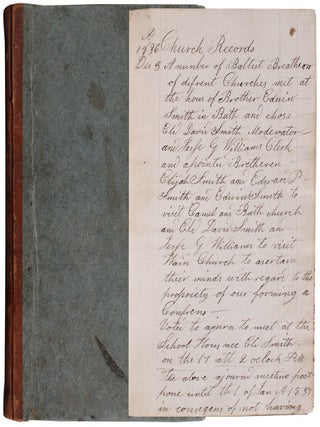 A
1836 Church Records
Dec 3 A number of Babtist Breatheren
of difrent Churches met at
the hous of Brother Edwin
Smith in Bath and chose
Eld David Smith Moderator
and Jesse G Williams Clerk
and apointed Bretheren
Elijah Smith and Edward P
Smith and Edwin Smith to
visit Camel and Bath church
and Eld David Smith and
Jesse G Williams to visit
Wain Church to ascertain
their minds with regard to the
propriety of our forming a
Confrens —
Voted to ajurn to meet at the
School Hous nee Eli Smith
on the 17 at 2 oclock PM
The above ajournd meeting post
pone until th 1 of Jan A 1837
in conseqens of not having